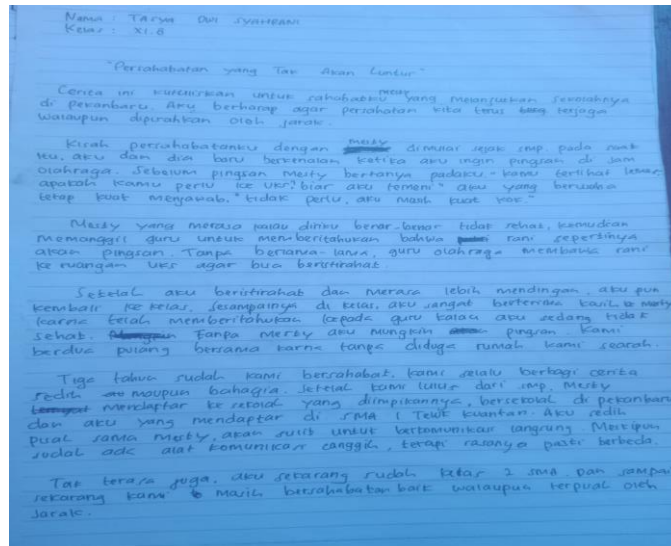 Nama : Tasya Dwi Syahrani
Kelas : XI.8
"Persahabatan yang Tak Akan Luntur"
Cerita ini kutuliskan untuk sahabatku mesty yang melanjutkan sekolahnya
di pekanbaru. Aku berharap agar persahatan kita terus terjaga
walaupun dipisahkan oleh jarak.
Kisah persahabatanku dengan mesty dimulai sejak smp. pada saat
itu, aku dan dia baru berkenalan ketika aku ingin pingsan di jam
olahraga. Sebelum pingsan Mesty bertanya padaku. "kamu terlihat lemas
apakah kamu perlu ke uks? biar aku temeni" aku yang berusaha
tetap kuat menjawab. "tidak perlu, aku masih kuat kok."
Mesty yang merasa kalau diriku benar-benar tidak sehat, kemudian
memanggil guru untuk memberitahukan bahwa rani sepertinya
akan pingsan. Tanpa berlama-lama, guru olahraga membawa rani
ke ruangan uks agar bisa beristirahat.
Setelah aku beristirahat dan merasa lebih mendingan, aku pun
kembali ke kelas. Sesampainya di kelas, aku sangat berterima kasih mesty
karna telah memberitahukan kepada guru kalau aku sedang tidak
sehat. Tanpa mesty aku mungkin pingsan kami
berdua pulang bersama karna tanpa diduga rumah kami searah.
Tiga tahun sudah kami bersahabat. kami selalu berbagi cerita
sedih moupun bahagia. setelah kami lulus dari smp. Mesty
mendaptar ke sekolah yang diimpikannya, bersekolah di pekanbaru
dan aku yang mendaptar di SMA 1 Teluk kuantan. Aku sedih
pisah sama mesty, akan sulit untuk berkomunikasi langsung. Meskipun
sudah ada alat komunikasi canggih, tetapi rasanya pasti berbeda.
Tak terasa juga, aku sekarang sudah kelas 2 SMA. Dan sampai
sekarang kami masih bersahabatan baik walaupun terpisah oleh
jarak.